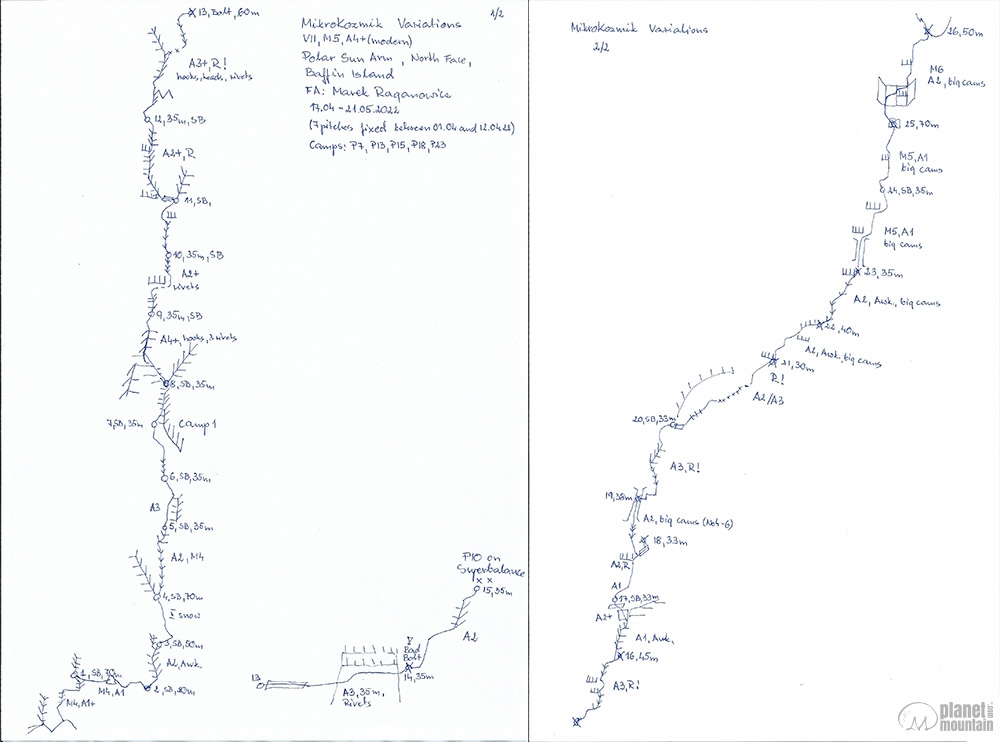 MikroKozmik Variations
1/2
VII, M5, A4+ (modern)
Polar Sun Arm, North Face,
Baffin Island
FA: Marek Raganowicz
17.04 - 21.05.2022
(7 pitches fixed between 01.04 and 12.04.22)
Camps: P7, P13, P15, P18, P23
13, Bolt, 60m
A3+, R!
hooks, heads, rivets
12, 35m, SB
A2+, R
11, SB,
10, 35m, SB
A2+
rivets
9, 35m, SB
A4+, hooks, 3 rivets
8, SB, 35m
7, SB, 35m
Camp 1
6, SB, 35m
A3
5, SB, 35m
A2, M4
4, SB, 70m
I snow
3, SB, 50m
A2, Awk.
1, SB, 70m
M4, A1
2, SB, 20m
M4, A1+
P10 on
Superbalance
15, 35m
A2
Bad
Bolt
14, 35m
13
A3, 35m,
Rivets
MikroKozmik Variations
2/2
26, 50m
M6
A2, big cams
25, 70m
M5, A1
big cams
24, SB, 35m
M5, A1
big cams
23, 35m
A2, Awk, big cams
22, 40m
A2, Awk, big cams
21, 30m
R!
A2/A3
20, SB, 33m
A3, R!
19, 38m
A2, big cams (No4-6)
18, 33m
A2, R
A1
17, SB, 33m
A2+
A1, Awk.
16, 45m
A3, R!
planet
mountain
.com